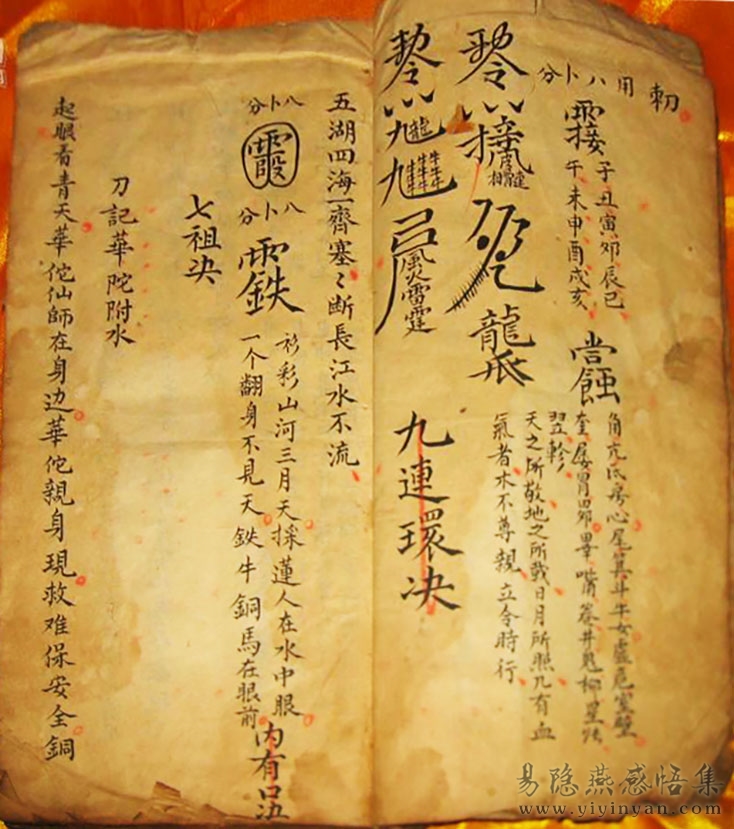 用八卜分
子丑寅卯辰巳
午未申酉戌亥
角亢氐房心尾箕斗牛女虛危室壁
奎婁胃昴畢觜參井鬼柳星張
翌軫
天之所敬地之所戴日月所照凡有血
氣者木不尊親立令時行
龍
九連環决
風火雷霆
五湖四海一齊塞〻断長江水不流
八卜分
八卜分
衫彩山河三月天採蓮人在水中眼
一个翻身不見天鉄牛銅馬在眼前
内有口
七祖决
刀記華陀附水
起眼看青天華佗仙師在身边華佗親身現救难保安全銅
易隐燕感悟集
www.yiyinyan.com